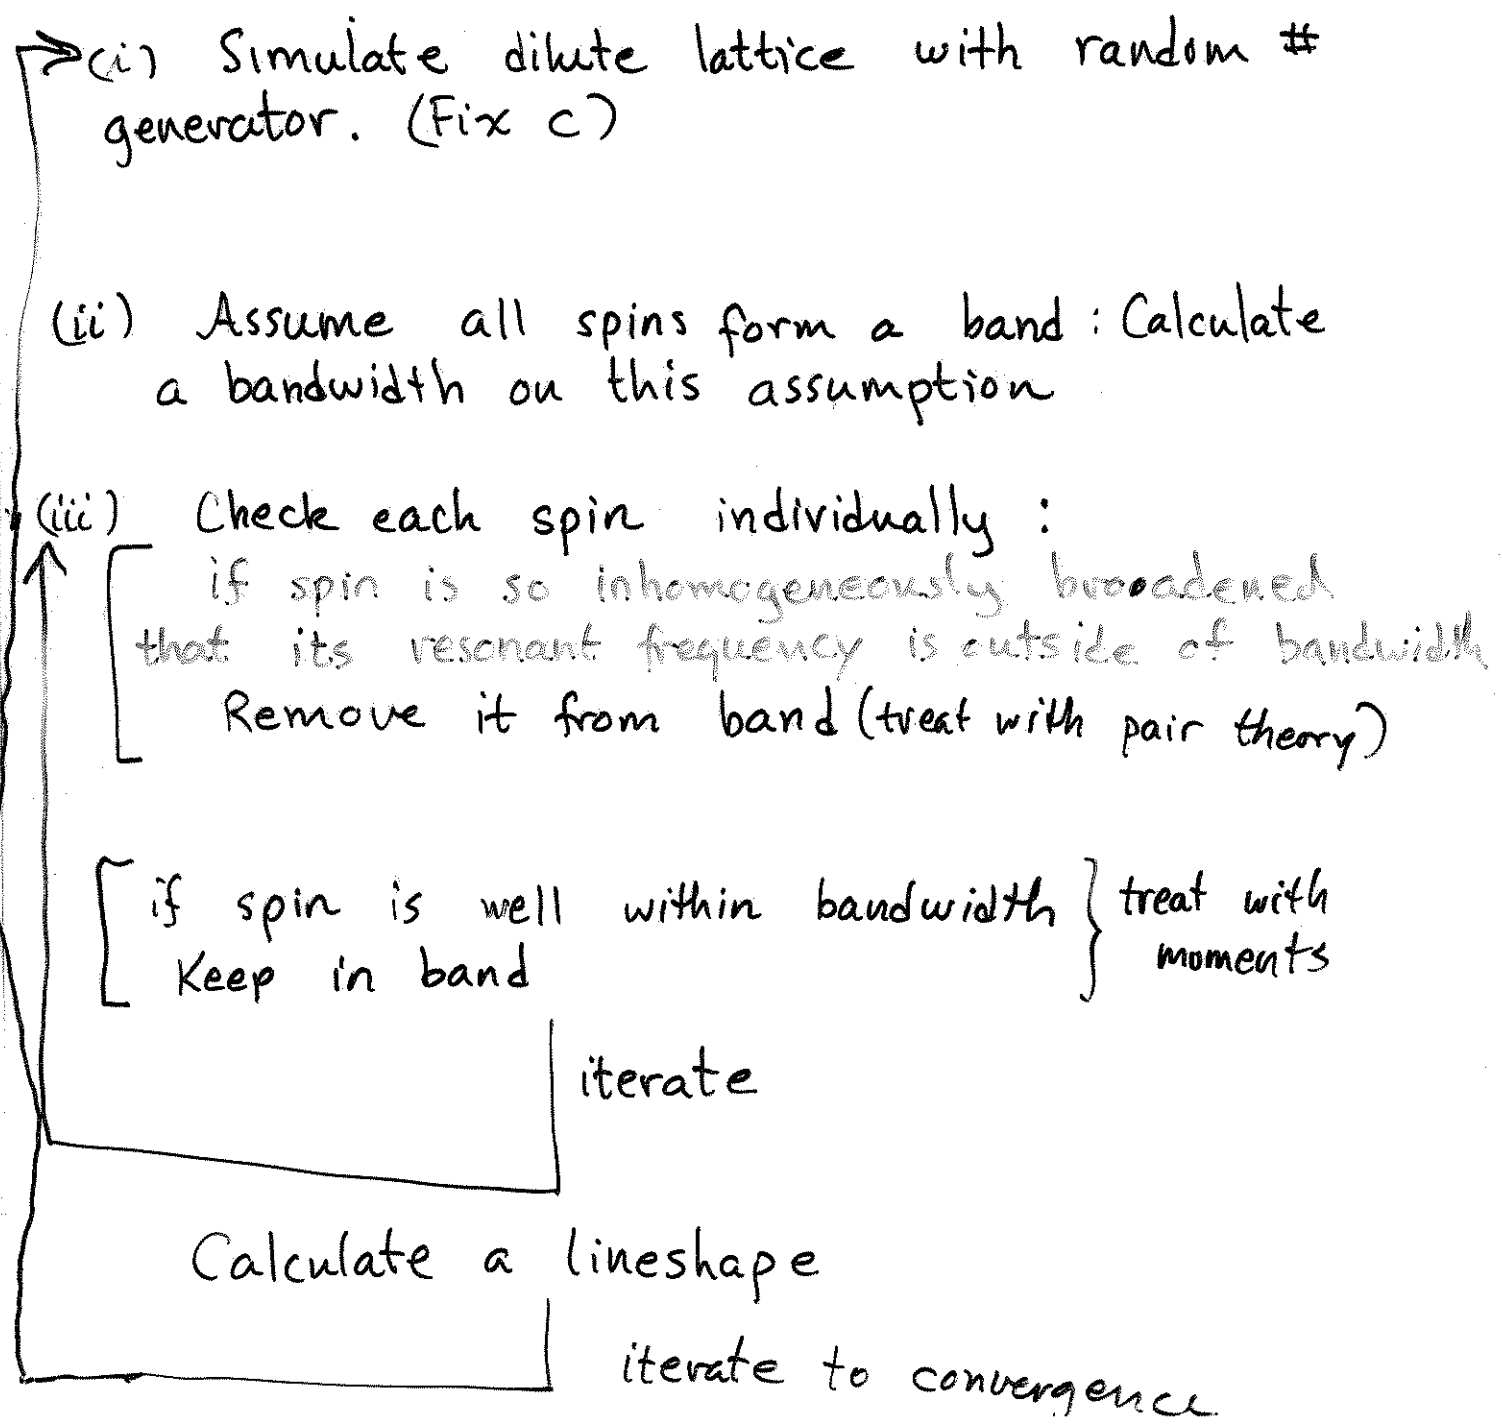 (i) Simulate dilute lattice with random #
generator. (Fix c)
(ii) Assume all spins form a band : Calculate
a bandwidth on this assumption
(iii) Check each spin individually :
if spin is so inhomogeneously broadened
that its resonant frequency is outside of bandwidth
Remove it from band (treat with pair theory)
if spin is well within bandwidth } treat with
Keep in band moments
iterate
Calculate a lineshape
iterate to convergence